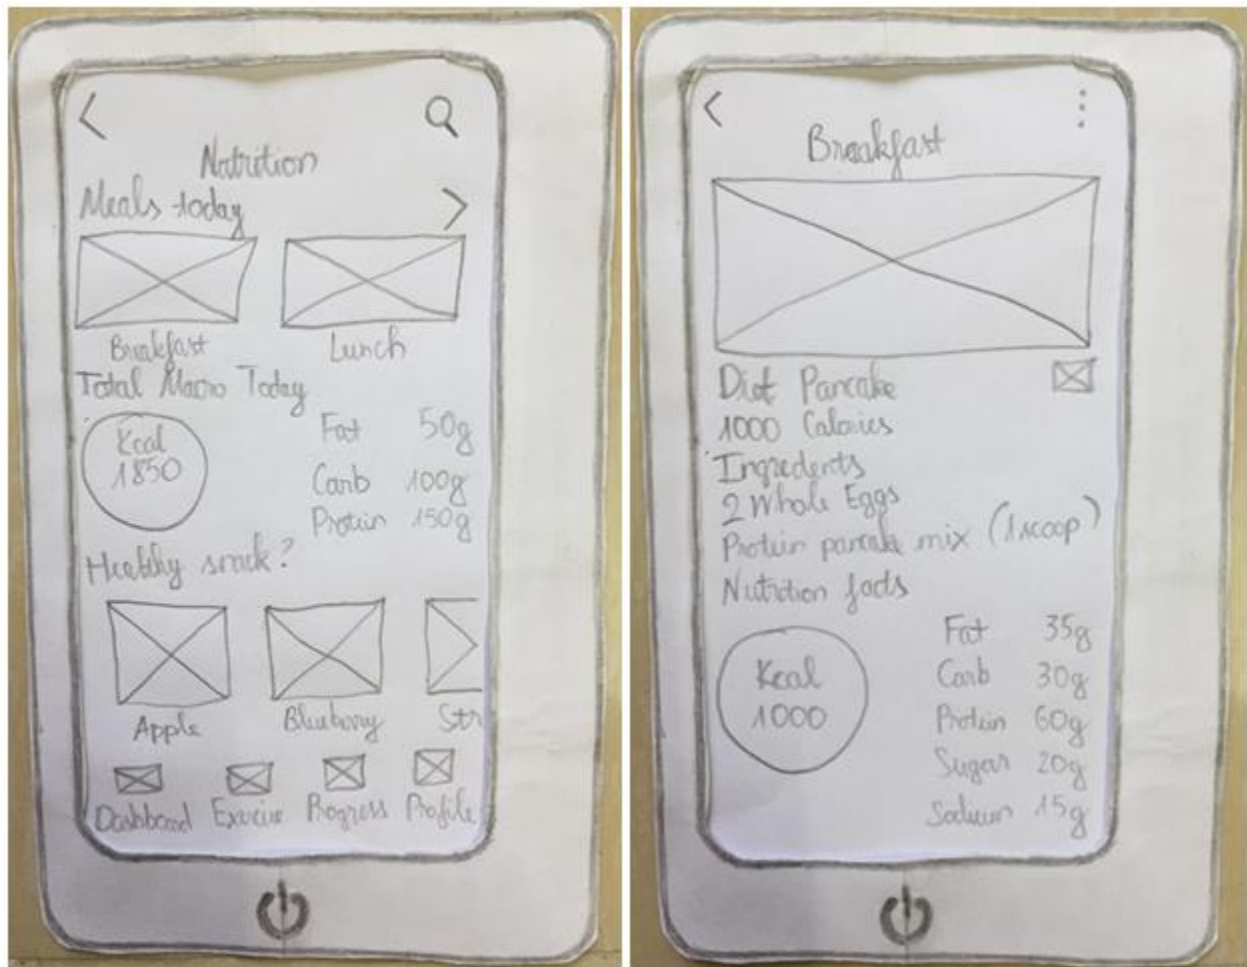 Nutrition
Meals today
Breakfast Lunch
Total Macro Today
Kcal
1850
Fat 50g
Carb 100g
Protein 150g
Healthy snack?
Apple Blueberry Str
Dashboard Exercise Progress Profile
Breakfast
Diet Pancake
1000 Calories
Ingredents
2 Whole Eggs
Protein pancake mix (1 scoop)
Nutrition facts
Kcal
1000
Fat 35g
Carb 30g
Protein 60g
Sugar 20g
Sodium 15g